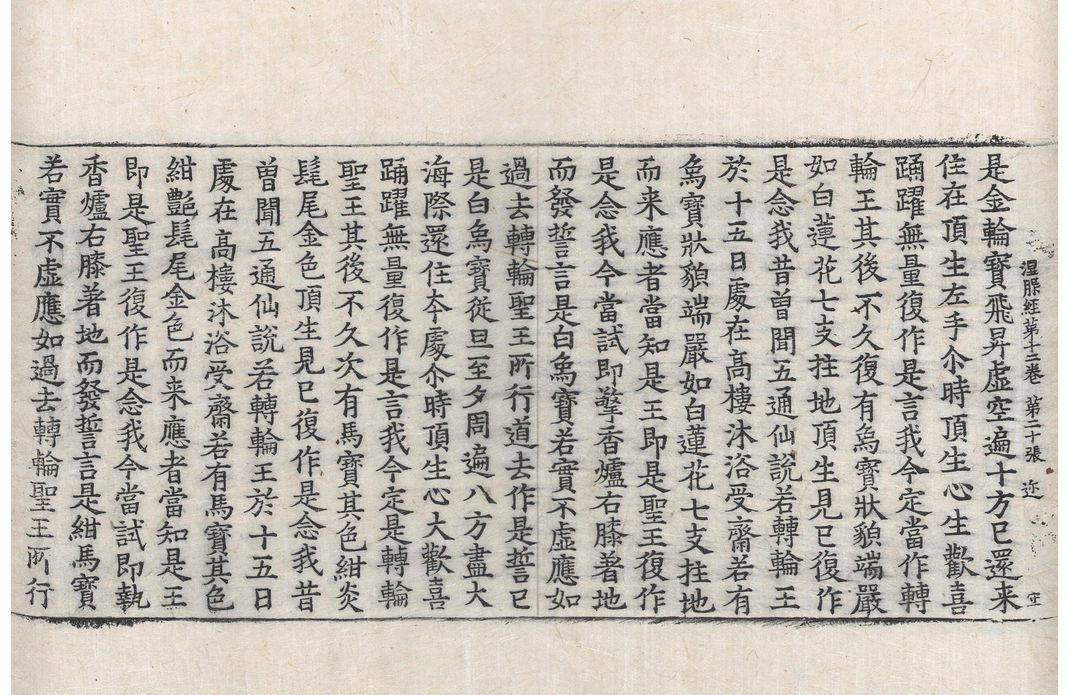 涅槃經第十二卷 第二十張 迩
是金輪寶飛昇虛空遍十方已還来
住在頂生左手尒時頂生心生歡喜
踊躍無量復作是言我今定當作轉
輪王其後不久復有象寶狀貌端嚴
如白蓮花七支拄地頂生見已復作
是念我昔曾聞五通仙說若轉輪王
於十五日處在高樓沐浴受齋若有
象寶狀貌端嚴如白蓮花七支拄地
而来應者當知是王即是聖王復作
是念我今當試即擎香爐右膝著地
而發誓言是白象寶若實不虛應如
過去轉輪聖王所行道去作是誓已
是白象寶從旦至夕周遍八方盡大
海際還住本處尒時頂生心大歡喜
踊躍無量復作是言我今定是轉輪
聖王其後不久次有馬寶其色紺炎
髦尾金色頂生見已復作是念我昔
曾聞五通仙說若轉輪王於十五日
處在高樓沐浴受齋若有馬寶其色
紺艷髦尾金色而来應者當知是王
即是聖王復作是念我今當試即執
香爐右膝著地而發誓言是紺馬寶
若實不虛應如過去轉輪聖王所行